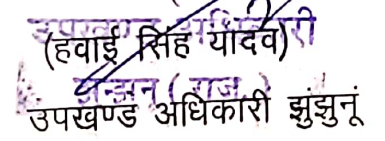 उपखण्ड अधिकारी
(हवाई सिंह यादव)
झुन्झुनू (राज.)
उपखण्ड अधिकारी झुंझुनूं